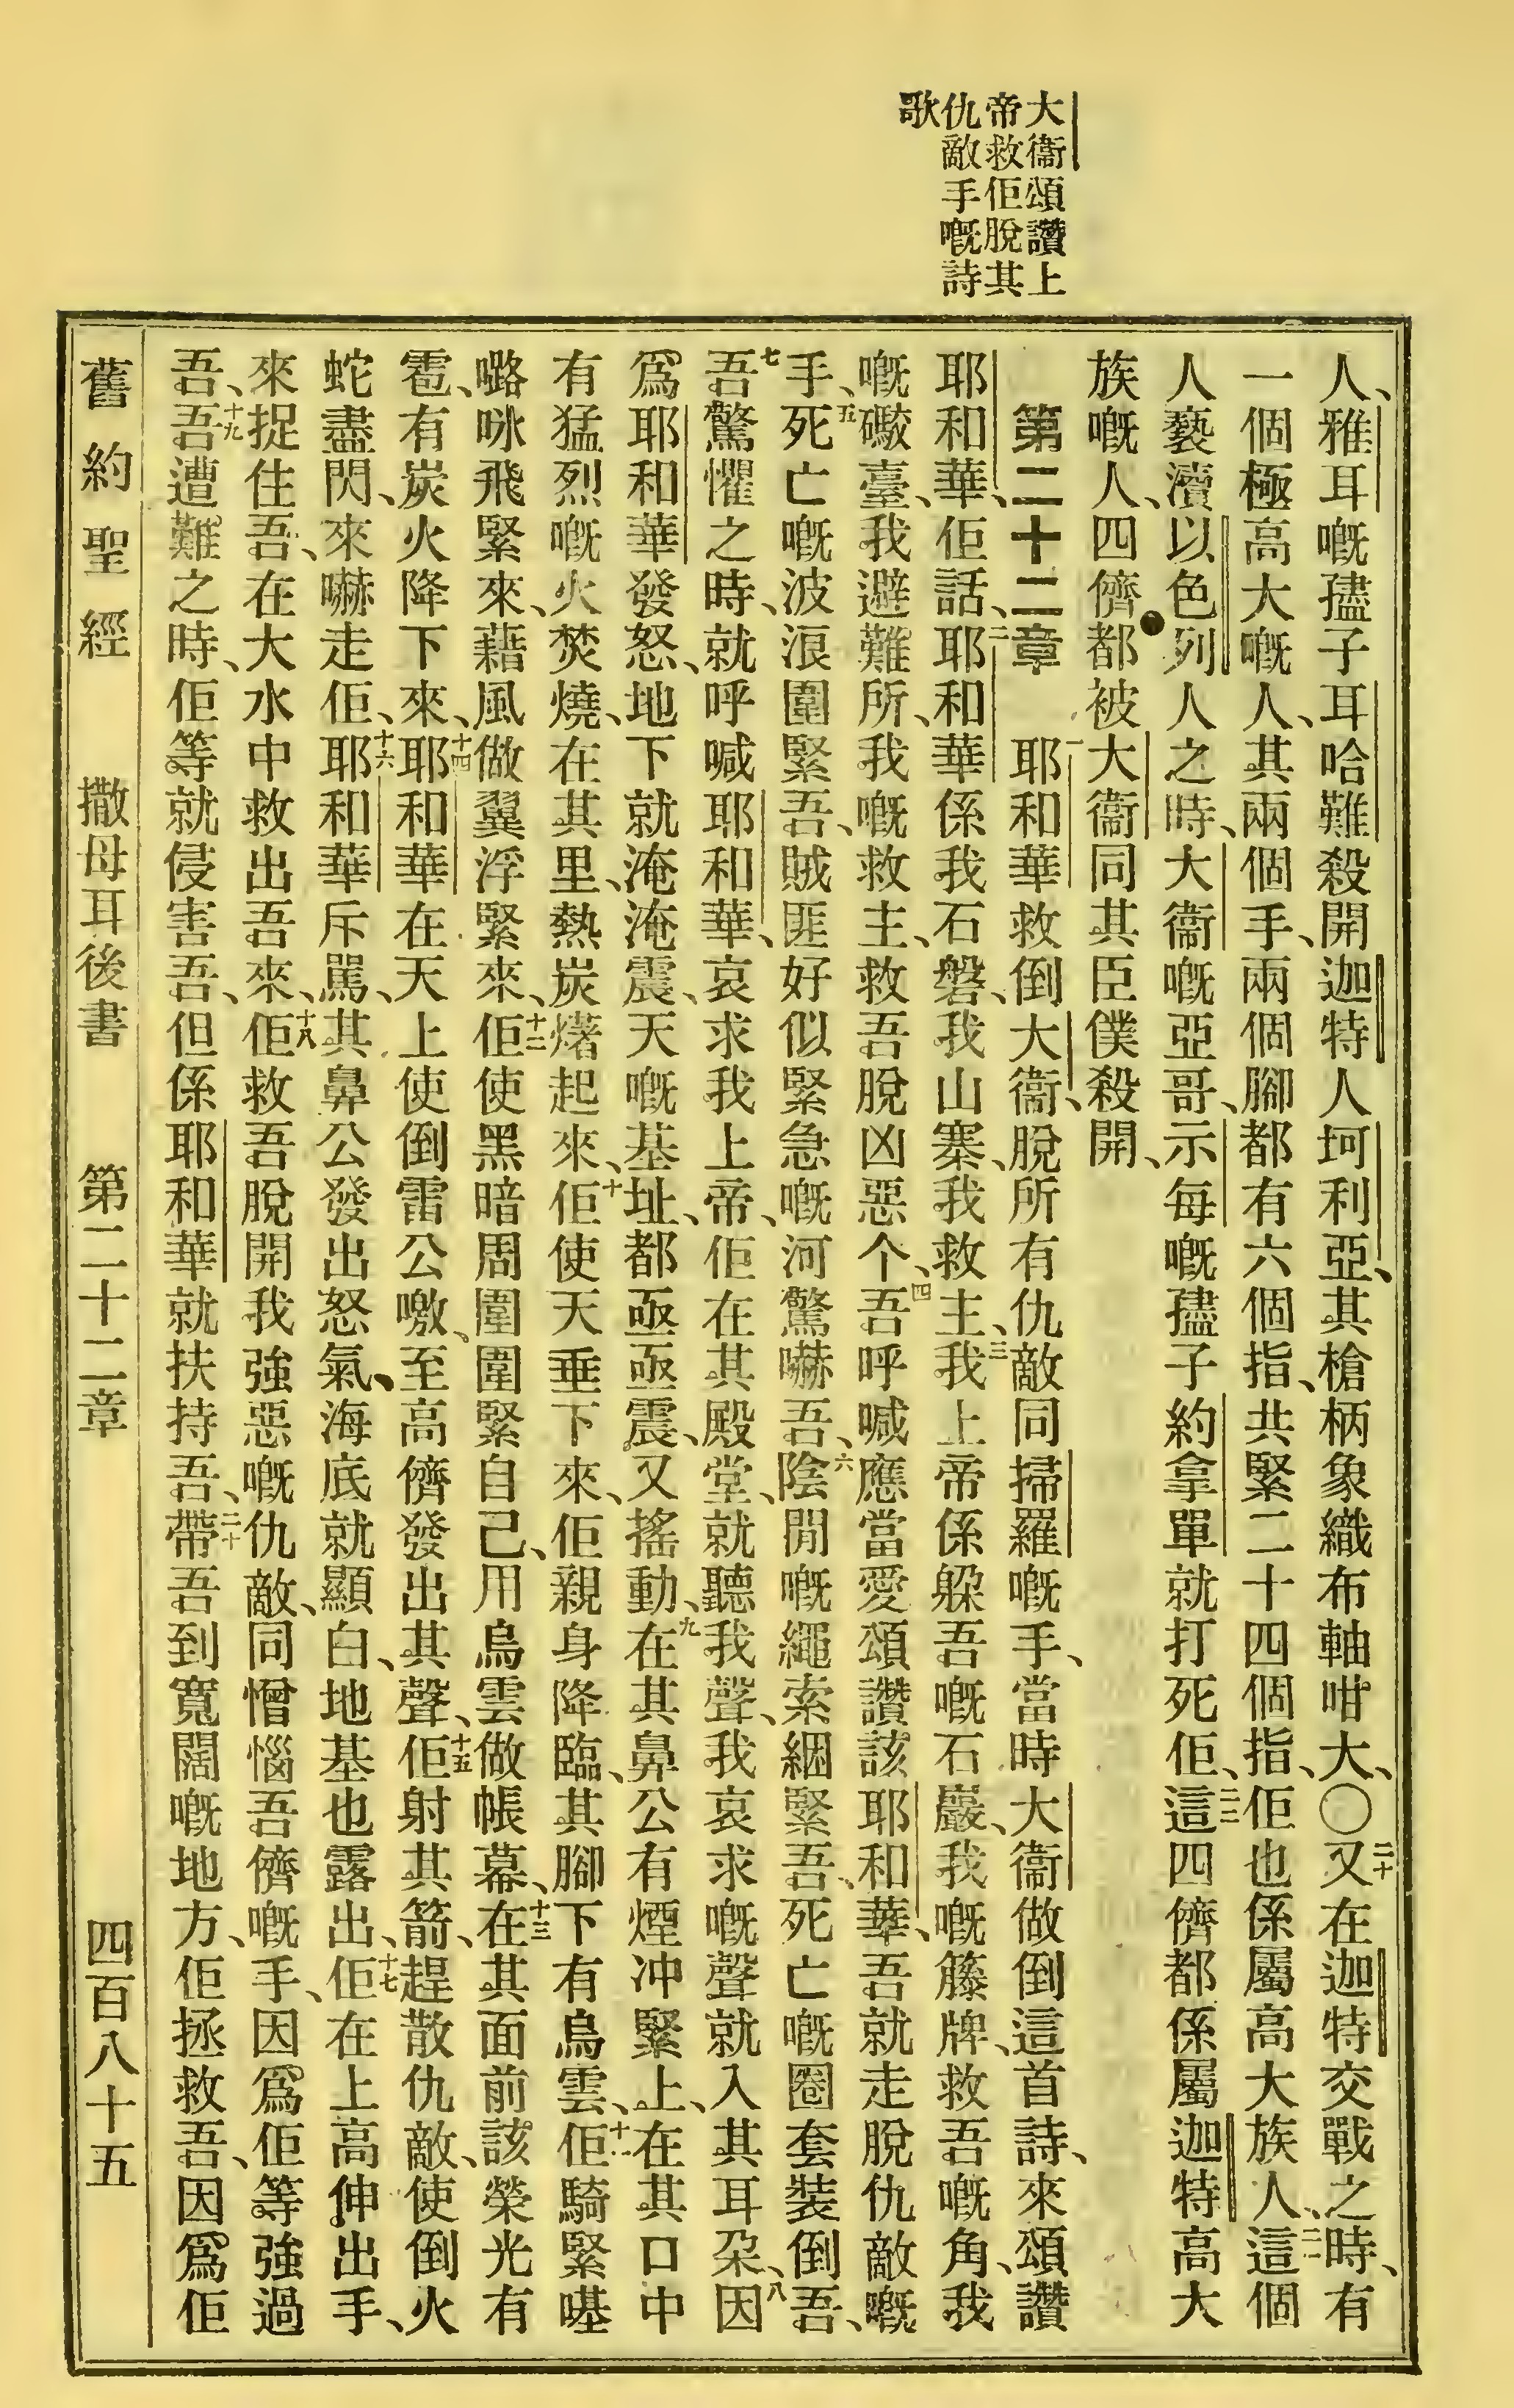 大衞頌讚上
帝救佢脫其
仇敵手嘅詩
歌
人、雅耳嘅孻子耳哈難殺開迦特人坷利亞、其槍柄象織布軸咁大、〇二十又在迦特交戰之時、有
一個極高大嘅人、其兩個手、兩個腳都有六個指、共緊二十四個指、佢也係屬高大族人、二一這個
人褻瀆以色列人之時、大衞嘅亞哥、示每嘅孻子約拿單就打死佢、二二這四儕都係屬迦特高大
族嘅人、四儕都被大衞同其臣僕殺開、
第二十二章　一耶和華救倒大衞、脫所有仇敵同掃羅嘅手、當時大衞做倒這首詩、來頌讚
耶和華、佢話、二耶和華係我石磐、我山寨、我救主、三我上帝係躲吾嘅石巖、我嘅籐牌、救吾嘅角、我
嘅礮臺、我避難所、我嘅救主、救吾脫凶惡个、四吾呼喊應當愛頌讚該耶和華、吾就走脫仇敵嘅
手、五死亡嘅波浪圍緊吾、賊匪好似緊急嘅河驚嚇吾、六陰間嘅繩索綑緊吾、死亡嘅圈套裝倒吾、
七吾驚懼之時、就呼喊耶和華、哀求我上帝、佢在其殿堂、就聽我聲、我哀求嘅聲就入其耳朶、八因
爲耶和華發怒、地下就淹淹震、天嘅基址、都亟亟震、又搖動、九在其鼻公有煙冲緊上、在其口中
有猛烈嘅火焚燒、在其里、熱炭㷮起來、十佢使天垂下來、佢親身降臨、其腳下有烏雲、十一佢騎緊𠹌
㗛咏飛緊來、藉風做翼浮緊來、十二佢使黑暗周圍圍緊自己、用烏雲做帳幕、十三在其面前該榮光有
雹、有炭火降下來、十四耶和華在天上使倒雷公噭、至高儕發出其聲、十五佢射其箭、趕散仇敵、使倒火
蛇盡閃、來嚇走佢、十六耶和華斥罵、其鼻公發出怒氣、海底就顯白、地基也露出、十七佢在上高伸出手、
來捉住吾、在大水中救出吾來、十八佢救吾脫開我強惡嘅仇敵、同憎惱吾儕嘅手、因爲佢等強過
吾、十九吾遭難之時、佢等就侵害吾、但係耶和華就扶持吾、二十帶吾到寬闊嘅地方、佢拯救吾、因爲佢
舊約聖經　撒母耳後書　第二十二章　四百八十五